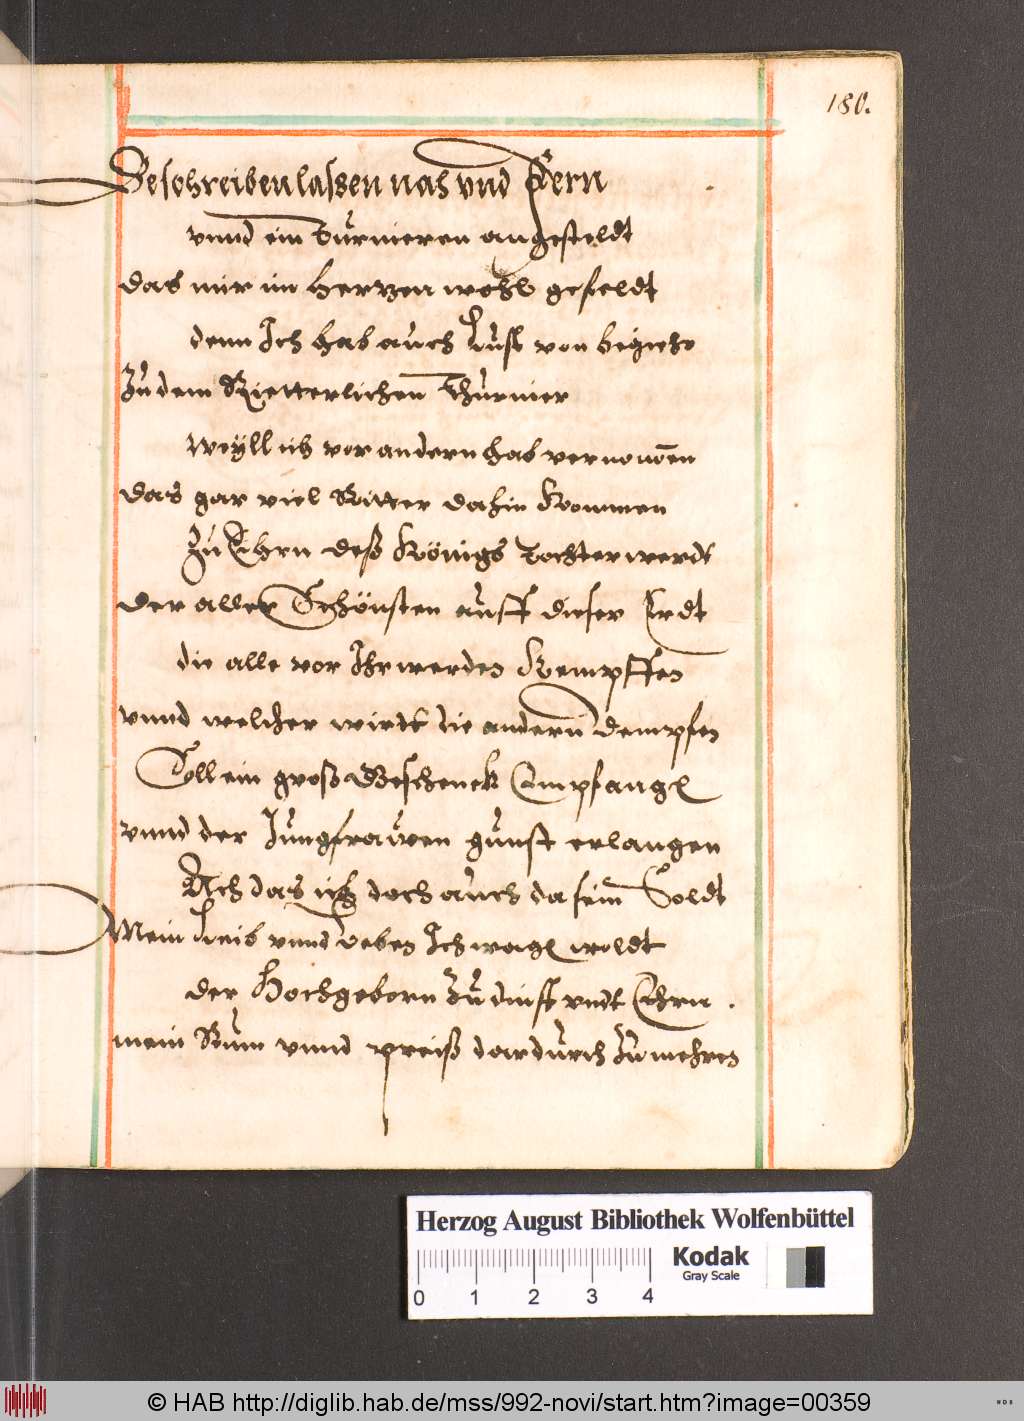 180.
Beschreiben lassen nah vnd Fern
vnnd ein Turnieren angesteldt
das mir im Herzen wohl gefeldt
denn Ich hab auch Lust von begiehr
Zu dem Rietterlichen Thurnier
Weyll ich vor andern hab vernom̄en
das gar viel Ritter dahin Kommen
Zu Ehrn deß Königs Tochter werdt
der aller Schönsten auff dieser Erdt
die alle vor Ihr werden Kempffen
vnnd welcher wirdt die andern dempfen
Soll ein groß Geschenck Empfangen
vnnd der Jungfrawen gunst erlangen
Ach das ich doch auch da sein Soldt
Mein Leib vnnd Leben Ich wagen woldt
der Hochgeborn Zu dinst vndt Ehrn .
mein Rum vnnd preiß dardurch Zu mehren
Herzog August Bibliothek Wolfenbüttel
Kodak
Gray Scale
0 1 2 3 4
© HAB http://diglib.hab.de/mss/992-novi/start.htm?image=00359